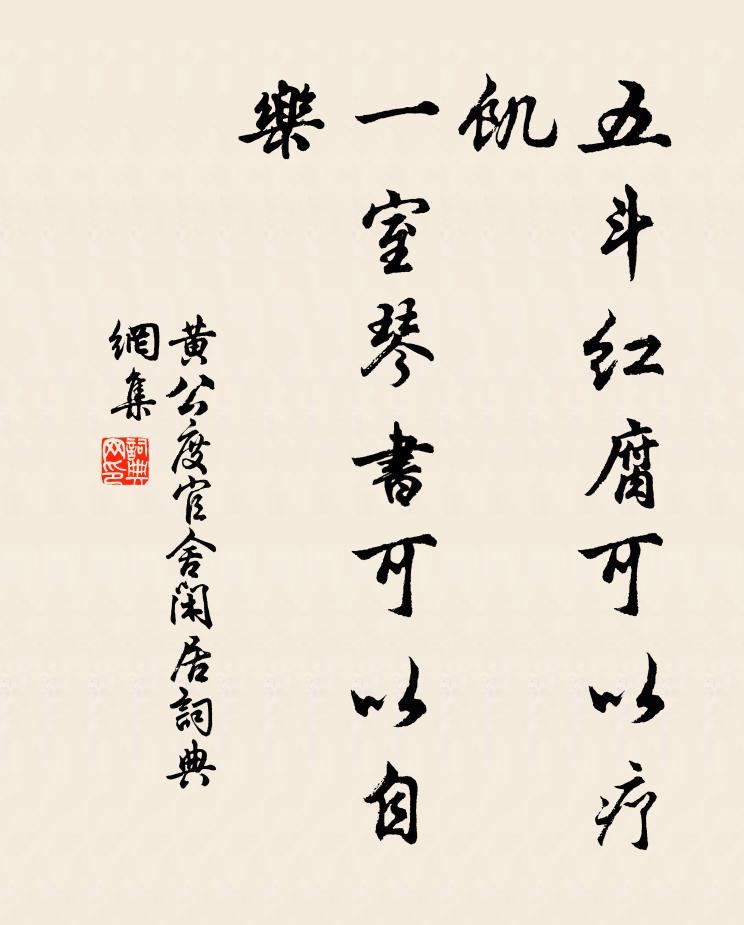 五斗红腐可以疗
飢
一室琴書可以自
樂
黄公度官舍閑居詞典
網集
詞典网印